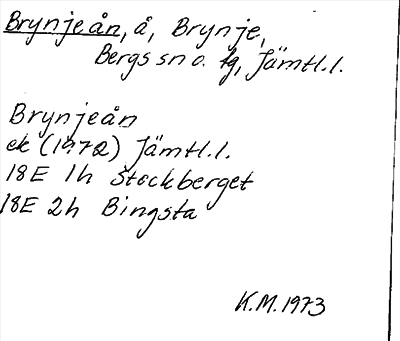 Brynjeån, å, Brynje,
Bergs sn o. tg, Jämtl.l.
Brynjeån
ek (1972) Jämtl.l.
18E 1h Stockberget
18E 2h Bingsta
K.M. 1973